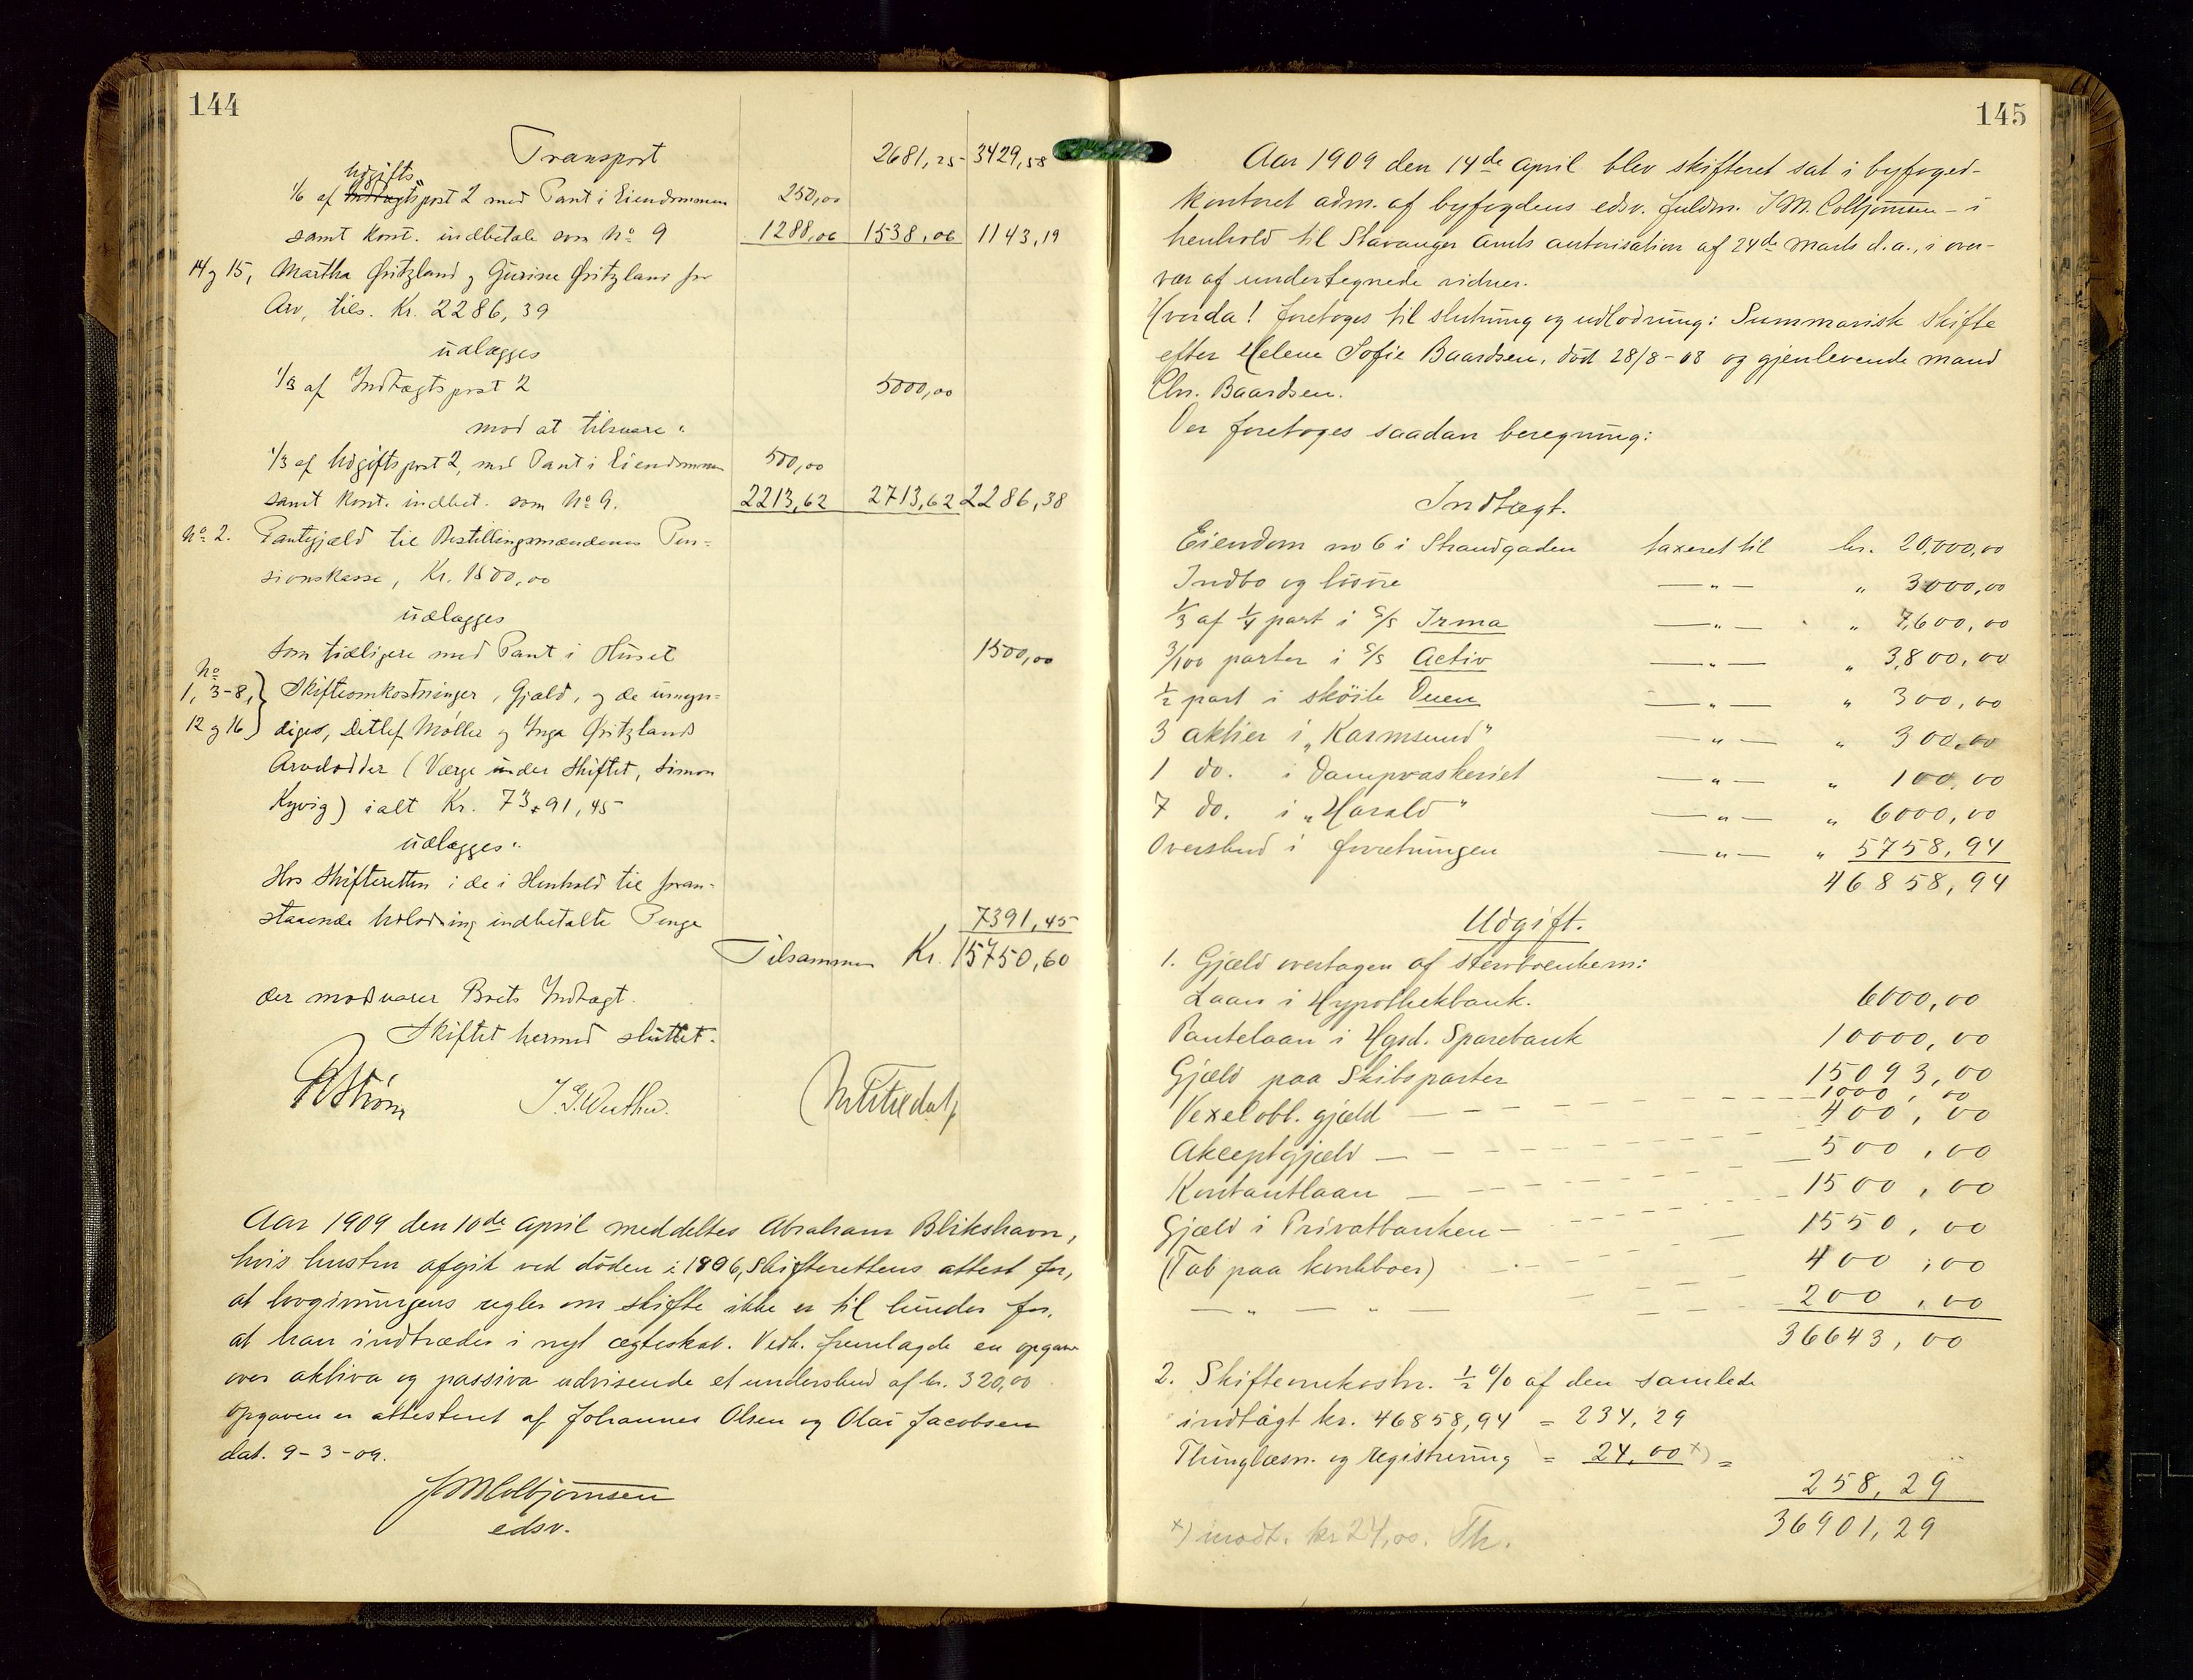 144
Transport 2681,25 3429,58
Udgifts
1/6 af Indtægtspost 2 med Pant i Eiendommen 250,00
samt kont. indbetale som No 9 1288,06 1538,06 1143,19
14 og 15, Martha Øritzland og Gurine Øritzland for
Arv, tils. Kr. 2286,39
udlægges
1/3 af Indtægtspost 2 5000,00
mod at tilsvare:
1/3 af Udgiftspost 2, med Pant i Eiendommen 500,00
samt kont. indbet. som No 9. 2213,62 2713,62 2286,38
No 2. Pantegjæld til Bestillingsmændenes Pen-
sionskasse, Kr. 1500,00
udlægges
som tidligere med Pant i Huset 1500,00
No
1, 3-8, Skifteomkostninger, Gjæld, og de umyn-
12 og 16 diges, Ditlef Møller og Inga Øritzlands
Arvelodder (Værge under Skiftet, Simon
Kyvig) ialt Kr. 7391,45
udlægges:
Hos Skifteretten i de i Henhold til foran-
staaende Udlodning indbetalte Penge 7391,45
Tilsammen Kr. 15750,60
der modsvarer Boets Indtægt.
Skiftet hermed sluttet.
Aar 1909 den 10de april meddeltes Abraham Blikshavn,
hvis hustru afgik ved døden i 1896, Skifterettens attest for,
at lovgivningens regler om skifte ikke er til hinder for,
at han indtræder i nyt ægteskab. Vedk. fremlagde en opgave
over aktiva og passiva udvisende et underskud af kr. 320,00
Opgaven er attesteret af Johannes Olsen og Olai Jacobsen
dat. 9-3-09.
J M Colbjørnsen
edsv.
145
Aar 1909 den 14de april blev skifteret sat i byfoged-
kontoret adm. af byfogdens edsv. fuldm. J M. Colbjørnsen - i
henhold til Stavanger Amts autorisation af 24de marts d.a., i over-
vær af undertegnede vidner.
Hvorda! foretoges til slutning og udlodning: Summarisk skifte
efter Helene Sofie Baardsen, død 28/8-08 og gjenlevende mand
Chr. Baardsen.
Der foretoges saadan beregning:
Indtægt.
Eiendom no 6 i Strandgaden taxeret til kr. 20,000,00
Indbo og løsøre — " — " 3000,00
1/3 af 1/4 part i S/S Irma — " — " 7,600,00
3/100 parter i S/S Activ — " — " 3,800,00
1/2 part i skøite Duen — " — " 300,00
3 aktier i „Karmsund" — " — " 300,00
1 do. i Dampvaskeriet — " — " 100,00
7 do. i „Harald" — " — " 6000,00
Overskud i forretningen — " — " 5758,94
46858,94
Udgift.
1. Gjæld overtagen af stervboenkem:
Laan i Hypothekbank. 6000,00
Pantelaan i Hgsd. Sparebank 10000,00
Gjæld paa Skibsparter 15093,00
1000,00
Vexelobl. gjæld — 400,00
Akceptgjæld — 500,00
Kontantlaan — 1500,00
Gjæld i Privatbanken — 1550,00
(Tab paa konkboer) 400,00
— " — " — 200,00
36643,00
2. Skifteomkostn. 1/2 % af den samlede
indtægt kr. 46858,94 = 234,29
Thinglæsn. og registrering = 24,00 x) =
258,29
36901,29
x) modt. kr 24,00. Th.